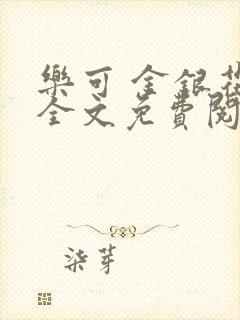 樂可 金銀花
全文免費閱
柒芽